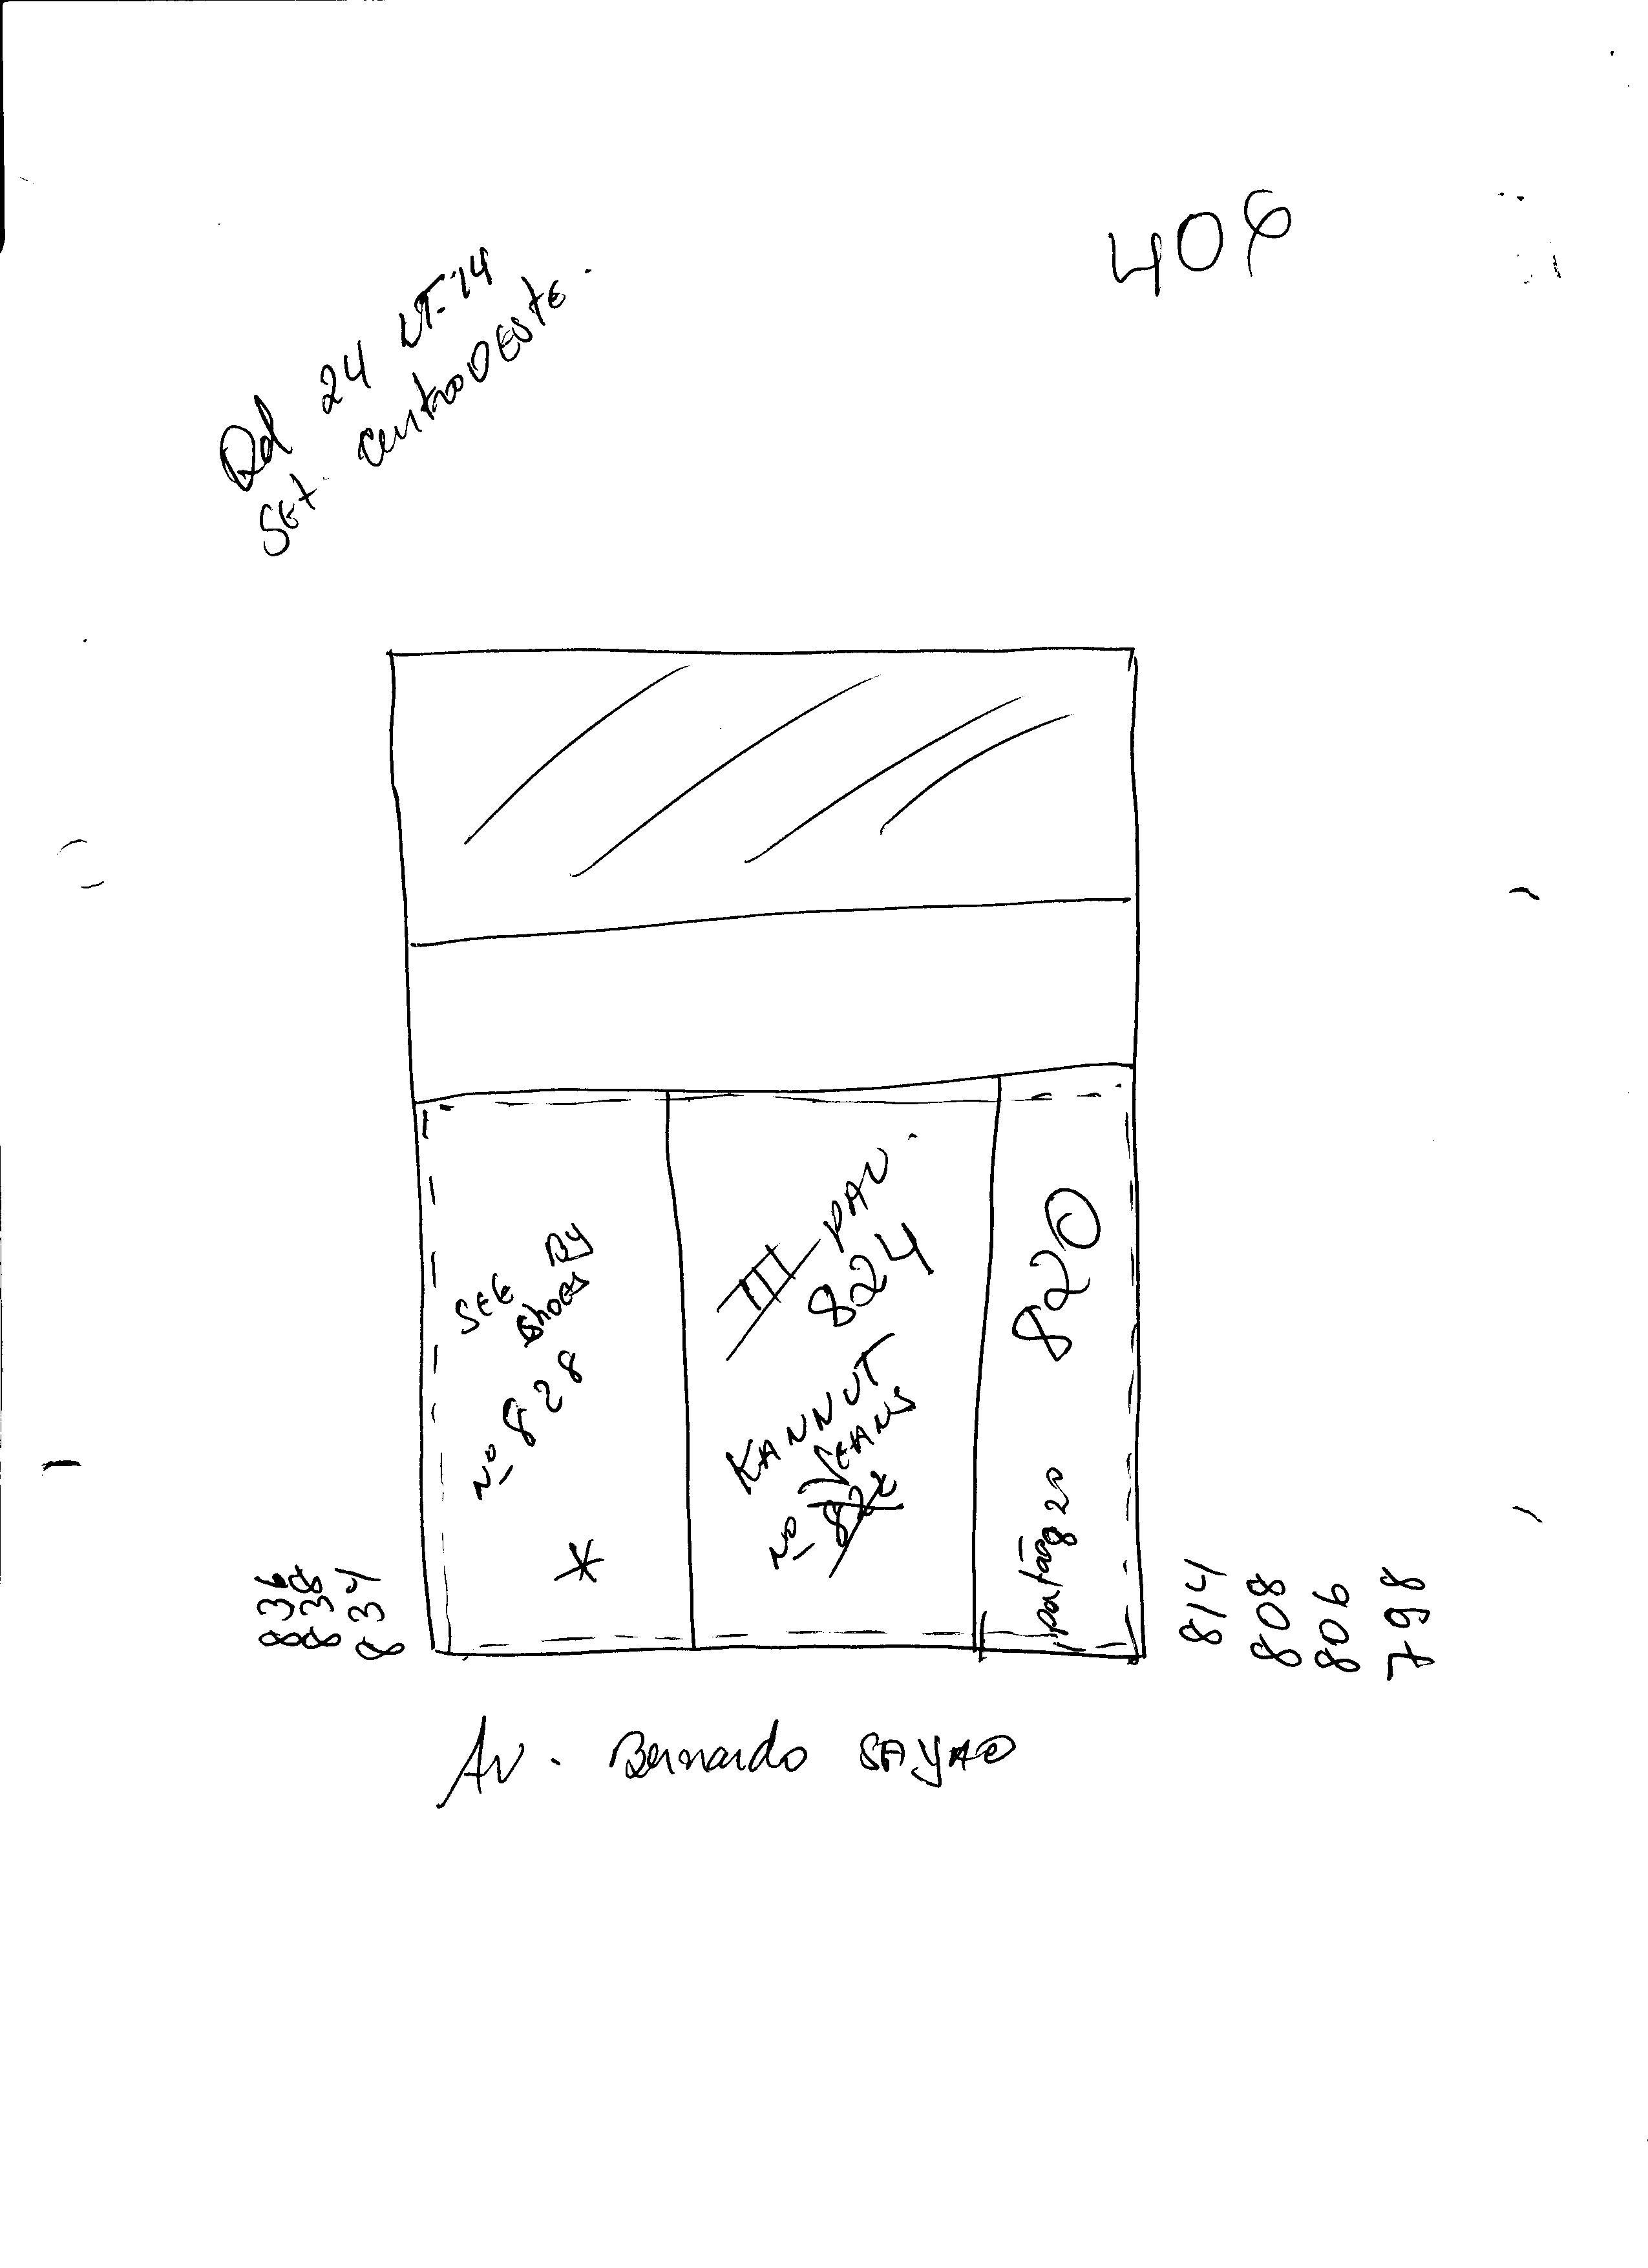 406
Qd 24 LT-14
Set. CentroOESte.
SEE By
Shoes
Nº 828
*
III PAV.
824
KANNUT
JEANS
Nº
820
portão 820
836
838
834
814
808
806
798
Av. Bernardo SAYAO